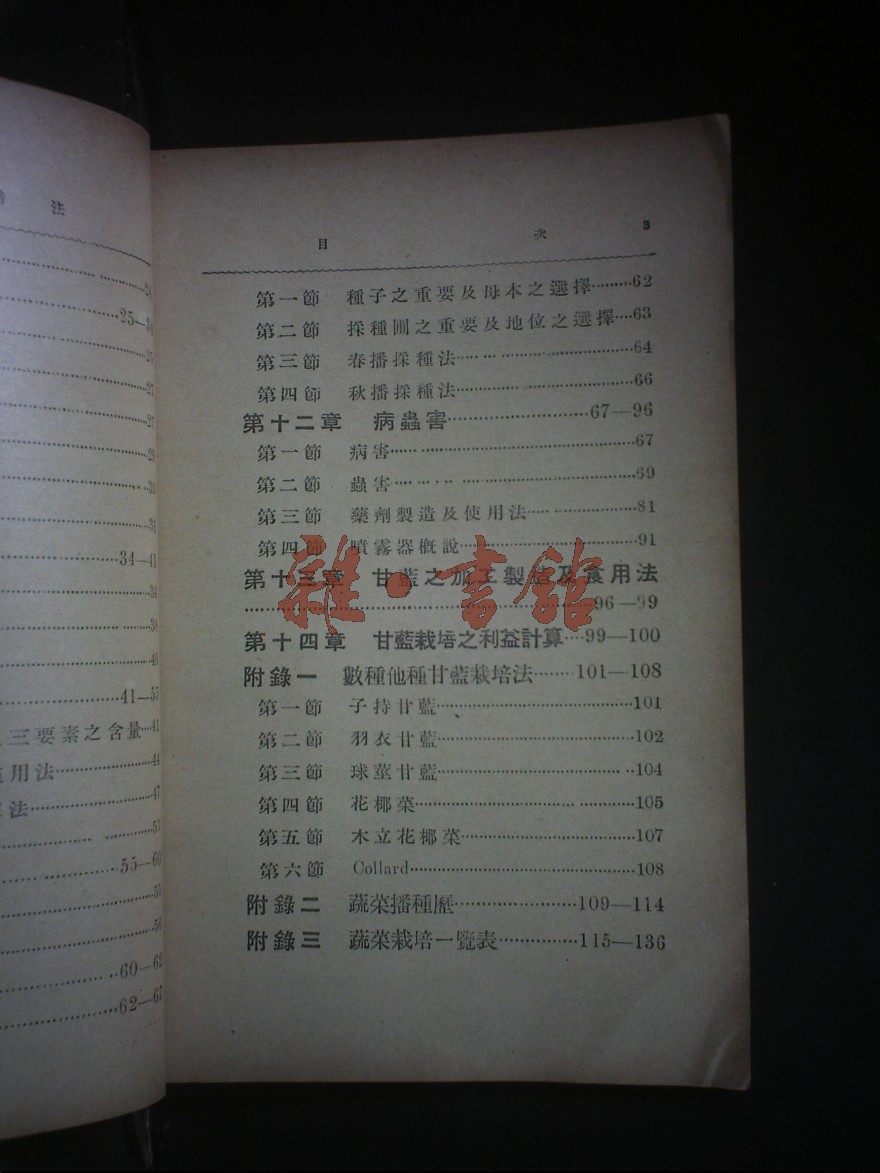 法
24
25—34
26
27
27
29
30
31
34—41
34
38
40
41—55
三要素之含量…41
用法…44
法…47
53
55—60
55
56
60—62
62—67
目 次 3
第一節 種子之重要及母本之選擇………62
第二節 採種圃之重要及地位之選擇…63
第三節 春播採種法………64
第四節 秋播採種法………66
第十二章 病蟲害………67—96
第一節 病害………67
第二節 蟲害………69
第三節 藥劑製造及使用法………81
第四節 噴霧器槪說………91
第十三章 甘藍之加工製造及食用法
………96—99
第十四章 甘藍栽培之利益計算…99—100
附錄一 數種他種甘藍栽培法………101—108
第一節 子持甘藍………101
第二節 羽衣甘藍………102
第三節 球莖甘藍………104
第四節 花椰菜………105
第五節 木立花椰菜………107
第六節 Collard………108
附錄二 蔬菜播種歷………109—114
附錄三 蔬菜栽培一覽表………115—136
雜·書館